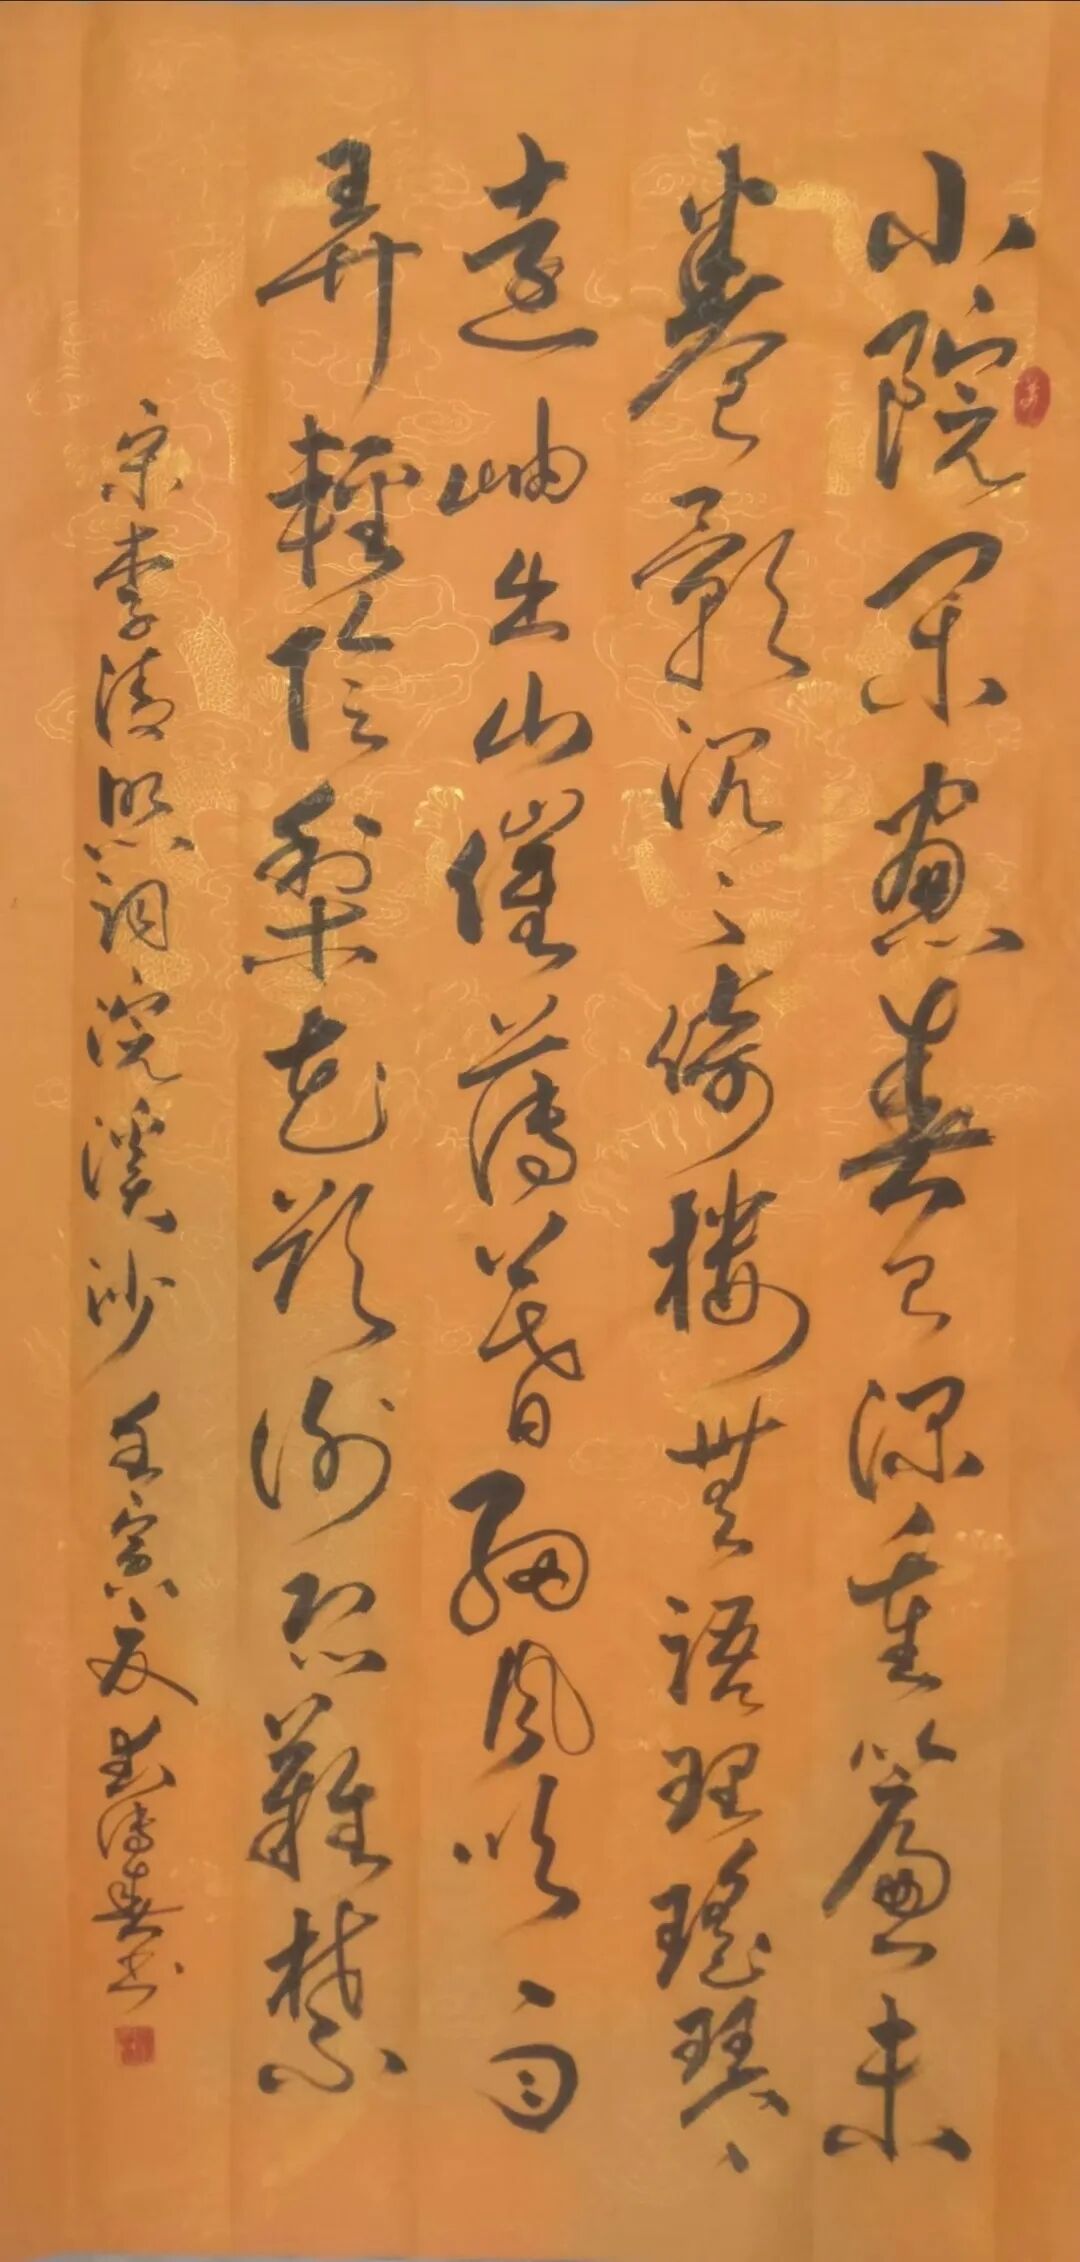 小院閑窻春已深重簾未
卷影沉々倚樓無語理瑤琴
遠岫出山催薄暮細風吹雨
弄輕陰梨花欲謝恐難禁
宋李清照詞浣溪沙 壬寅夏 春书